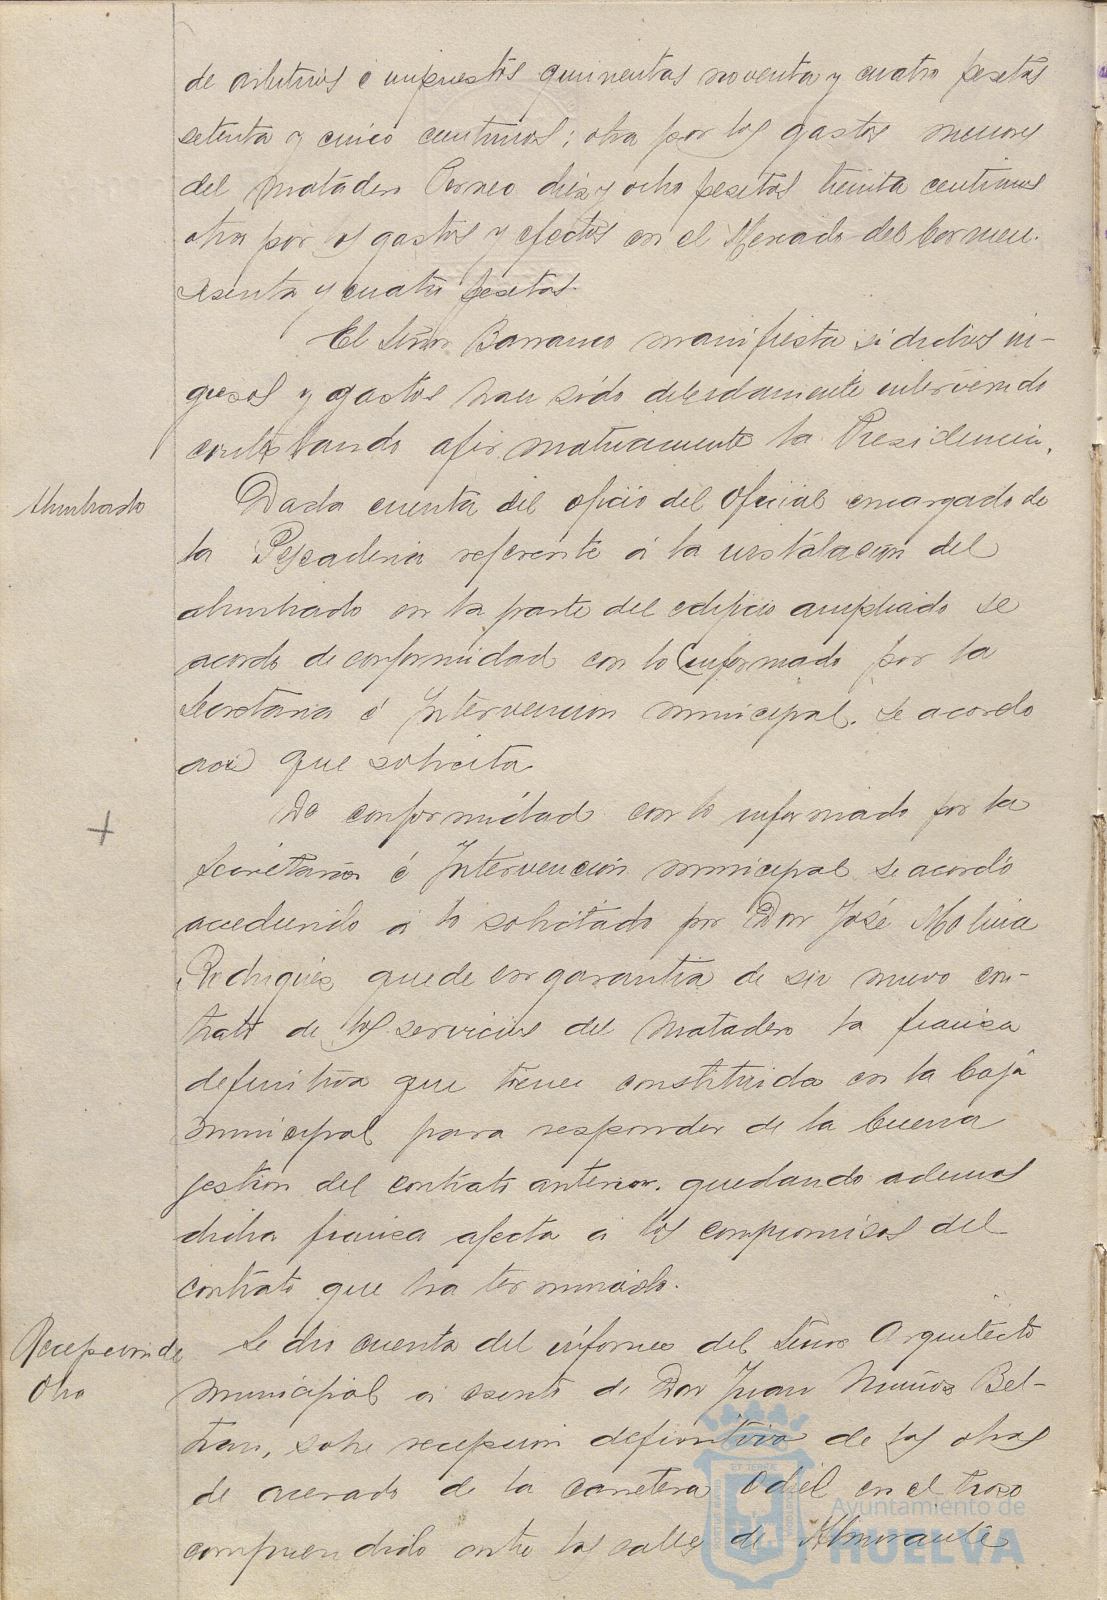 de arbitrios é impuestos quinientas noventa y cuatro pesetas
setenta y cinco centimos; otra por los gastos menores
del matadero Porneo diez y ocho pesetas treinta centimos
otra por los gastos y efectos en el Mercado del Carmen.
sesenta y cuatro pesetas.
El Señor Barranco manifiesta si dichos in-
gresos y gastos han sido debidamente intervenido
contestando afirmativamente la Presidencia.
Alumbrado
Dada cuenta del oficio del Oficial encargado de
la Pescaderia referente á la instalación del
alumbrado en la parte del edificio ampliado se
acordo de conformidad con lo informado por la
Secretaria é Intervencion municipal. se acordo
que solicita
De conformidad con lo informado por la
Secretaria é Intervención municipal se acordó
accediendo á lo solicitado por Don José Molina
Rodriguez quede en garantia de su nuevo con-
trato de los servicios del matadero la fianza
definitiva que tiene constituida en la Caja
municipal para responder de la buena
gestion del contrato anterior. quedando ademas
dicha fianza afecta á los compromisos del
contrato que ha terminado.
Recepcion de
Obra
Se dio cuenta del informe del Señor Arquitecto
municipal á escrito de Don Juan Muñoz Bel-
tran, sobre recepcion definitiva de las obras
de acerado de la carretera Odiel en el trozo
comprendido entre las calles de Almirante
Ayuntamiento de
HUELVA